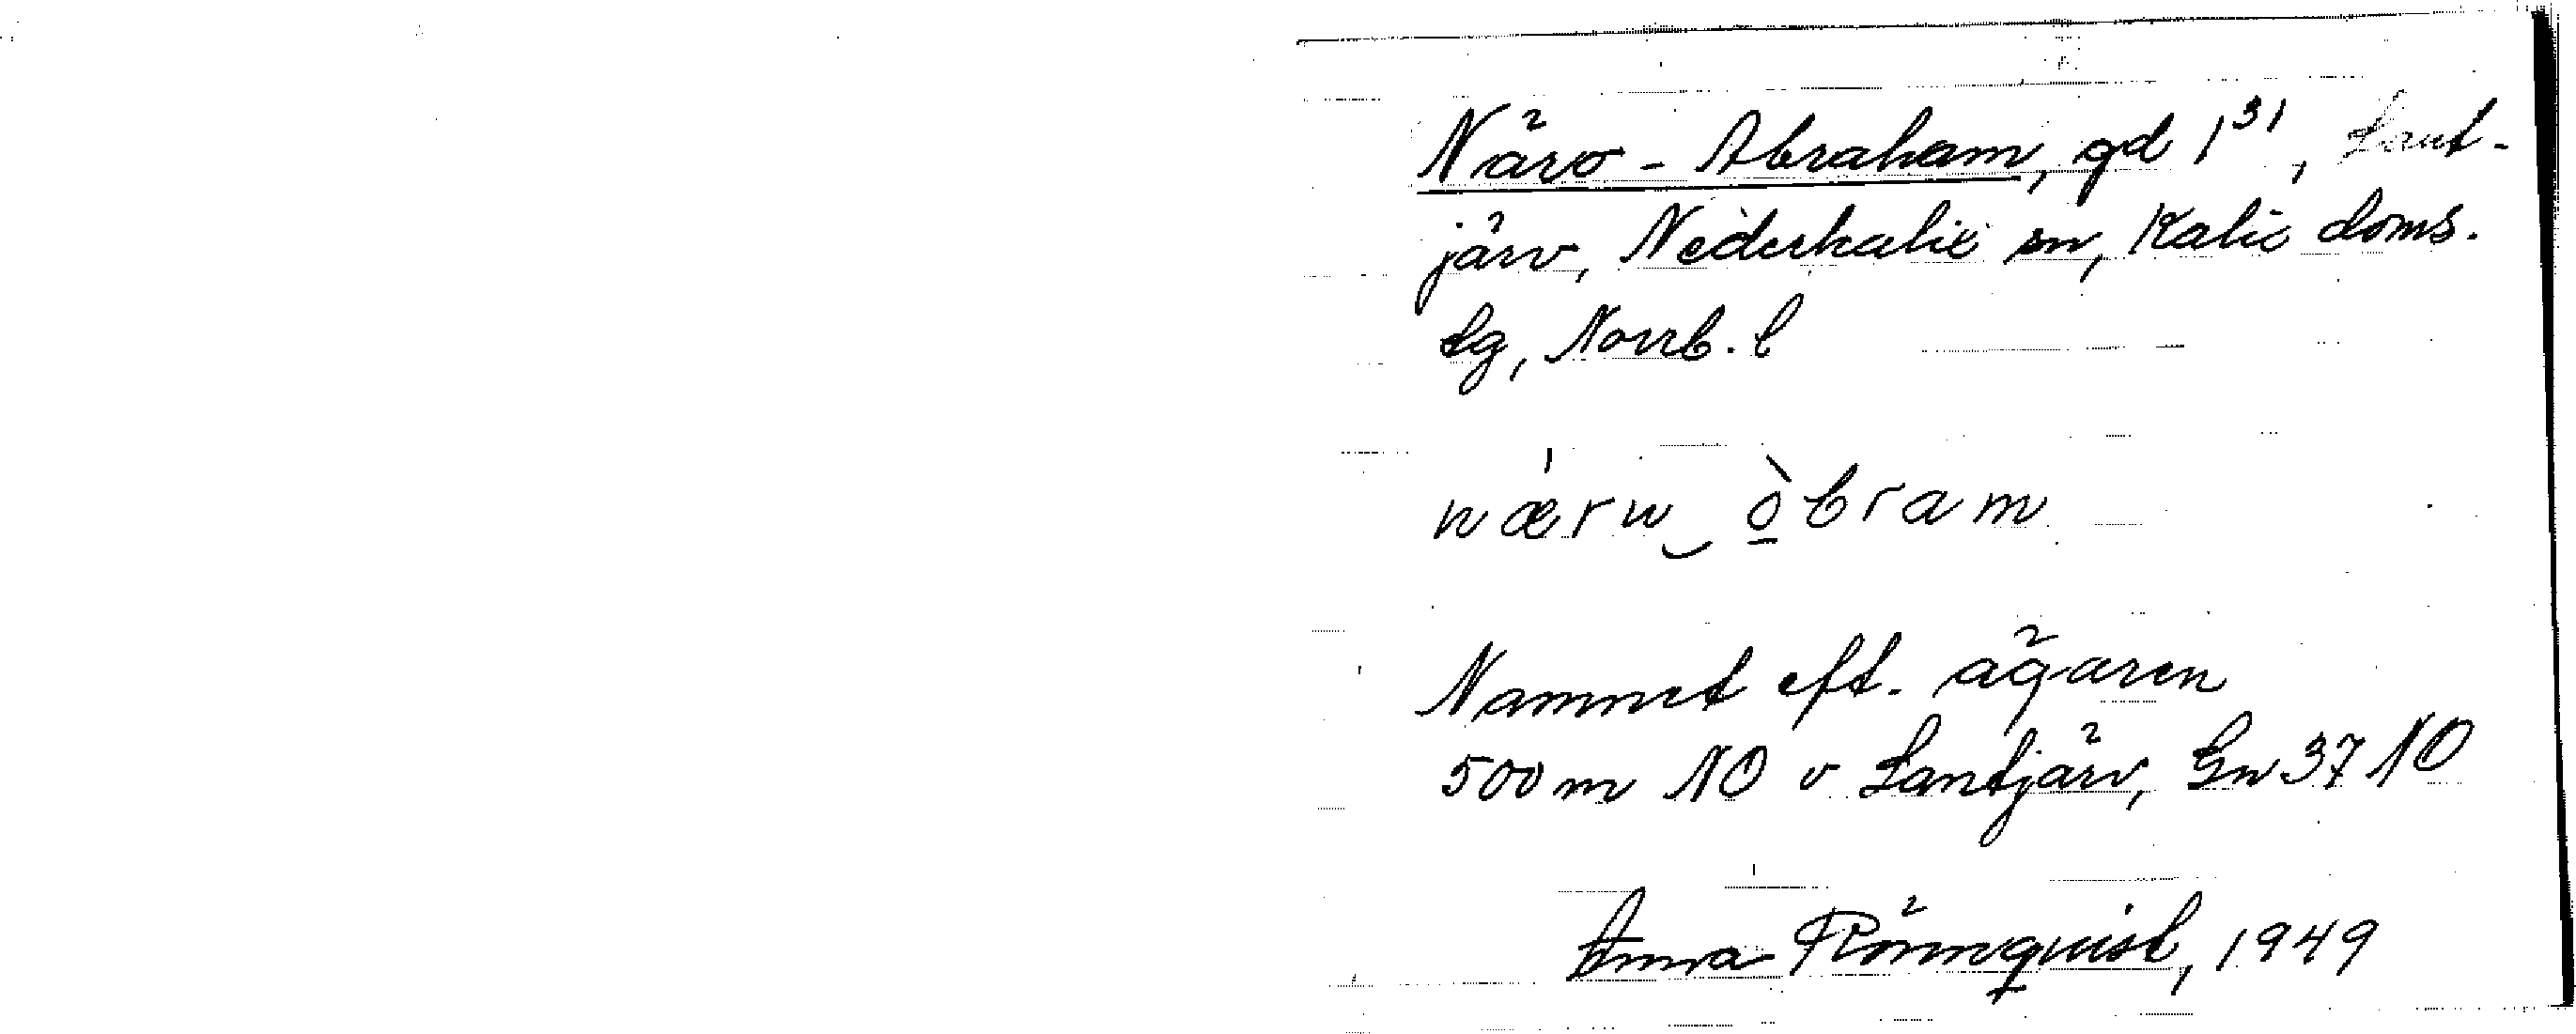 Näro-Abraham, gd 1³¹, Lant-
järv, Nederkalix sn, Kalix doms.
lg, Norrb. l
nærω òbram
Namnet eft. ägaren
500 m NO v Lantjärv, Gn 37 NO
Anna Rönnquist, 1949